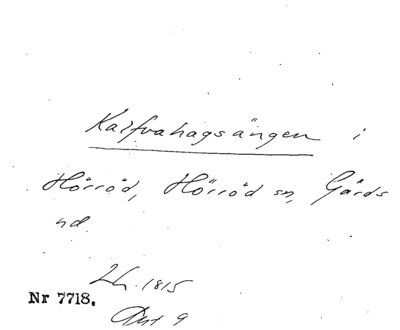 Kalfvahagsängen i
Hörröd, Hörröd sn, Gärds
hd.
Lh. 1815
Nr 7718.
Akt 9